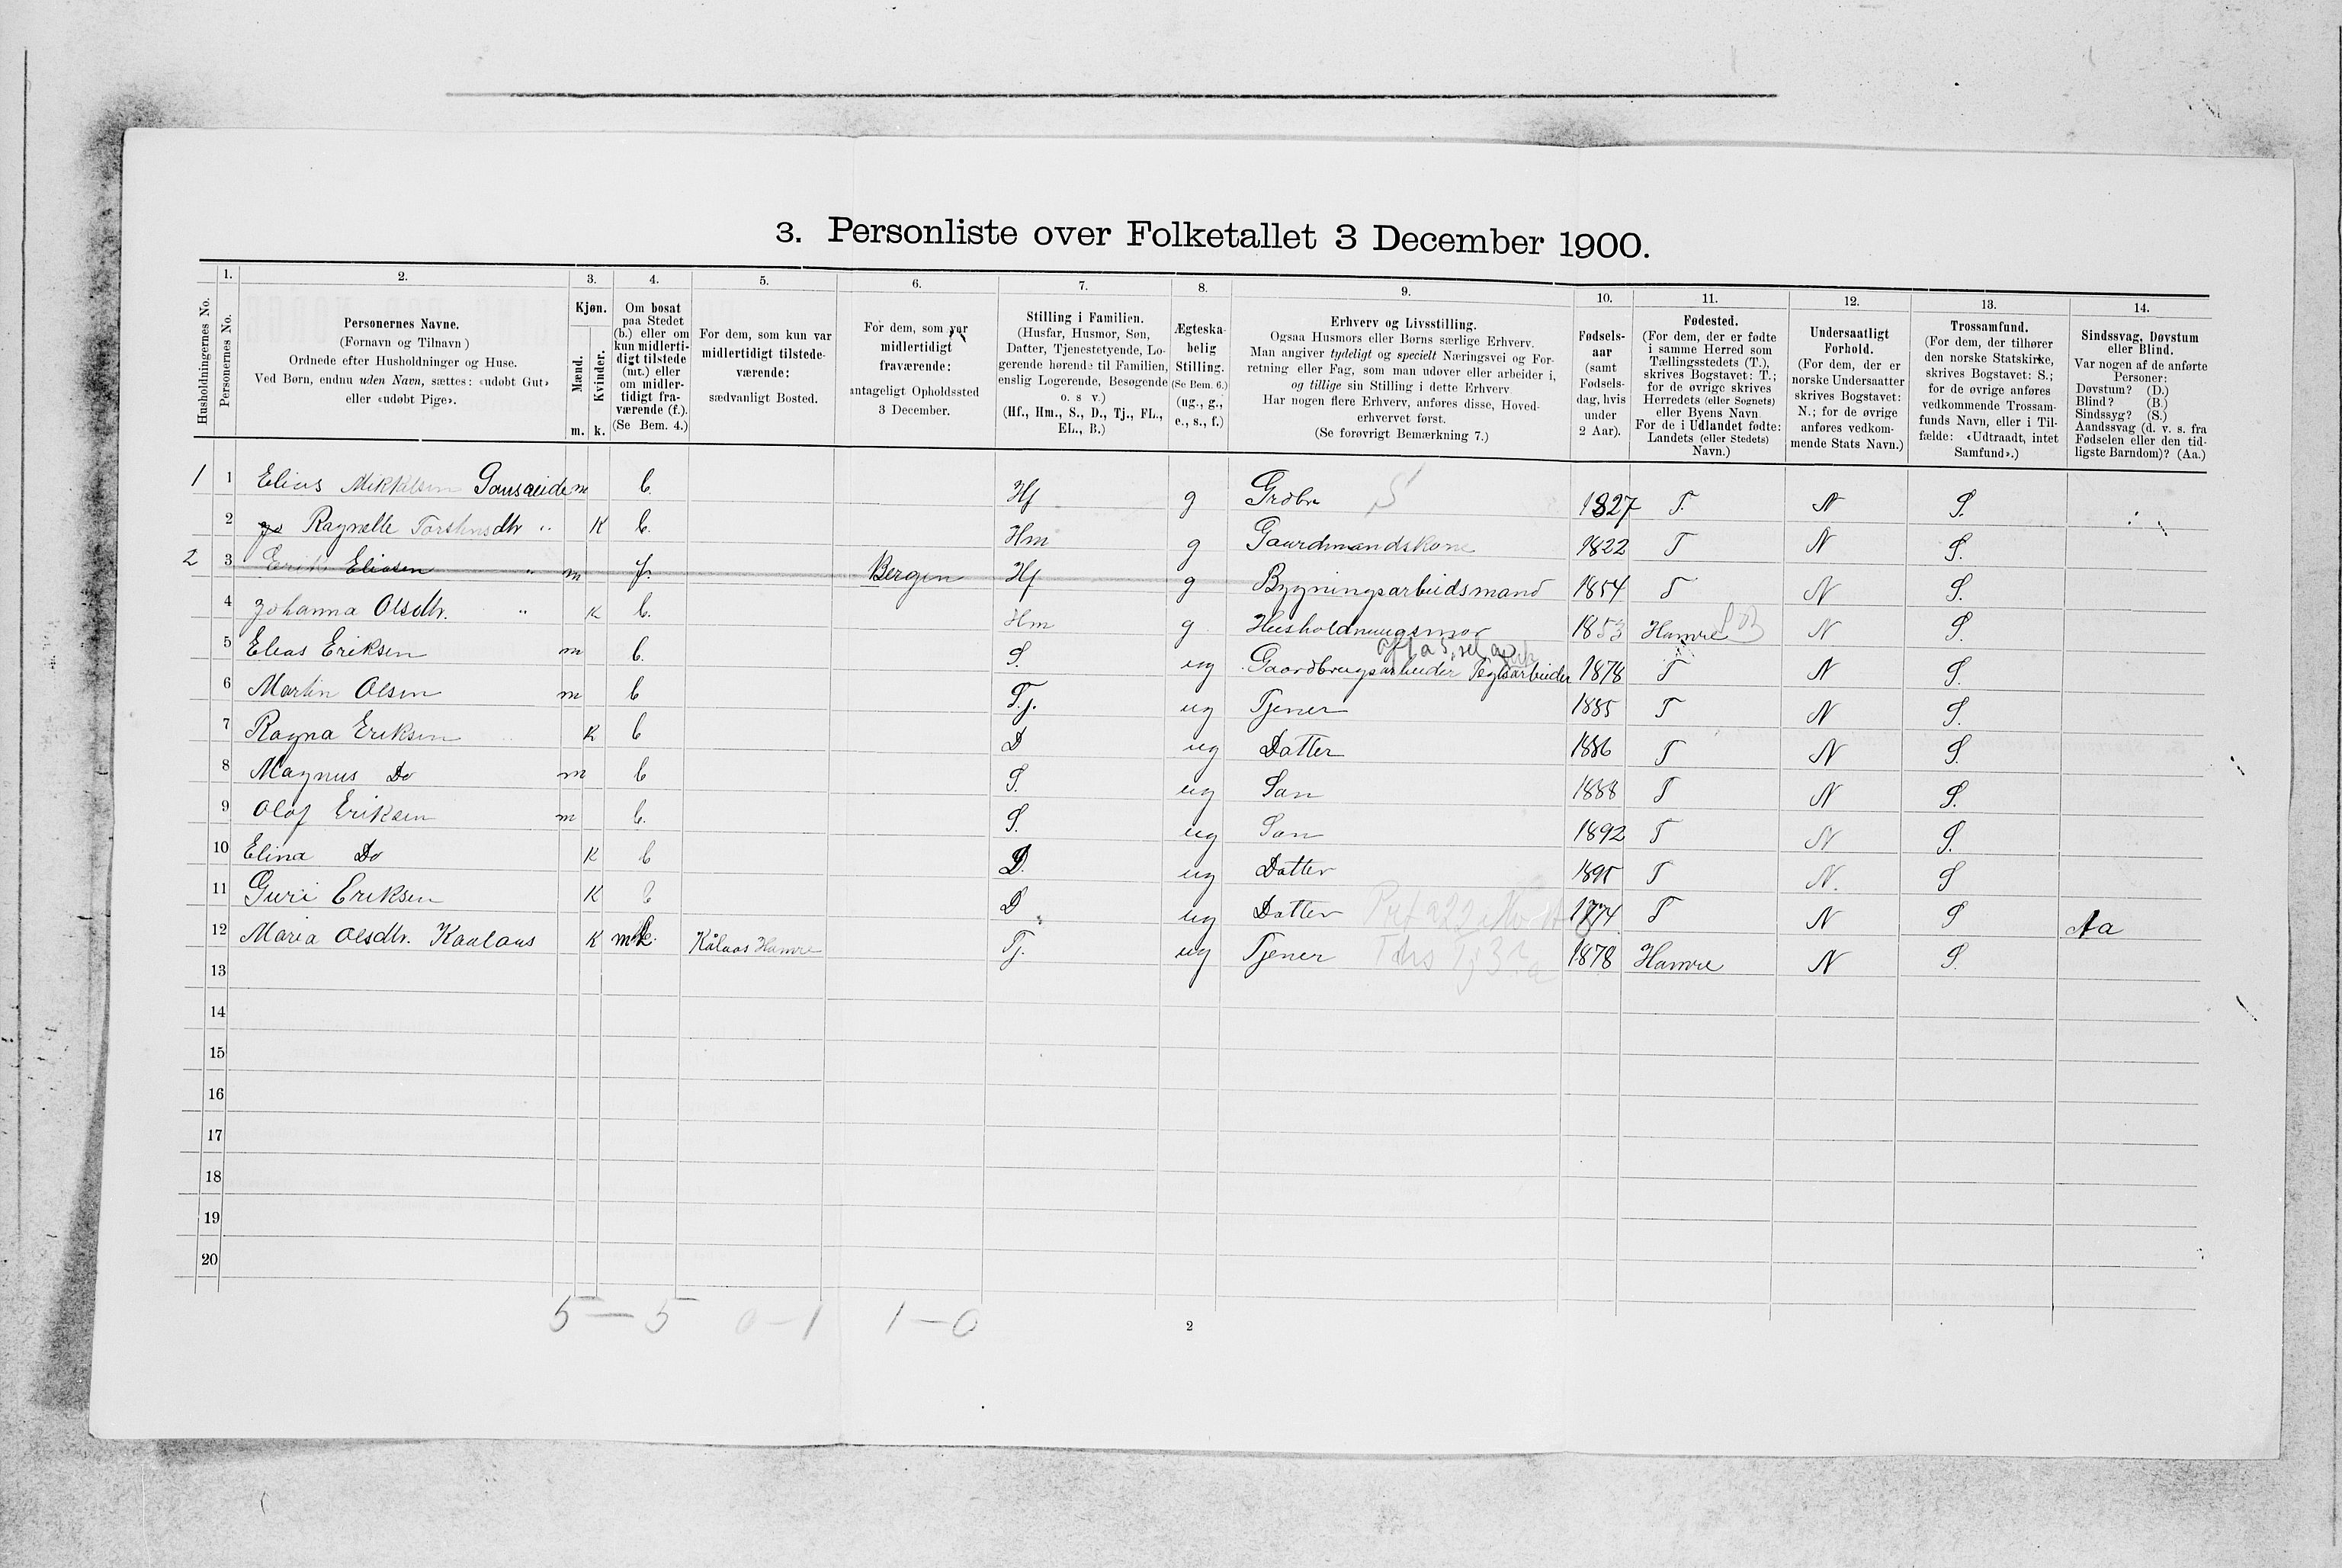 3. Personliste over Folketallet 3 December 1900.
Husholdningernes No.
1.
Personernes No.
2.
Personernes Navne.
(Fornavn og Tilnavn)
Ordnede efter Husholdninger og Huse.
Ved Børn, endnu uden Navn, sættes: «udøbt Gut»
eller «udøbt Pige».
3.
Kjøn.
Mænd.
Kvinder.
m. k.
4.
Om bosat
paa Stedet
(b.) eller om
kun midlerti-
digt tilstede
(mt.) eller
om midler-
tidigt fra-
værende (f.).
(Se Bem. 4.)
5.
For dem, som kun var
midlertidigt tilstede-
værende:
sædvanligt Bosted.
6.
For dem, som var
midlertidigt
fraværende:
antageligt Opholdssted
3 December.
7.
Stilling i Familien.
(Husfar, Husmor, Søn,
Datter, Tjenestetyende, Lo-
gerende hørende til Familien,
enslig Logerende, Besøgende
o. s v.)
(Hf., Hm., S., D., Tj., FL.,
EL., B.)
8.
Ægteska-
belig
Stilling.
(Se Bem. 6.)
(ug., g.,
e., s., f.)
9.
Erhverv og Livsstilling.
Ogsaa Husmors eller Børns særlige Erhverv.
Man angiver tydeligt og specielt Næringsvei og For-
retning eller Fag, som man udøver eller arbeider i,
og tillige sin Stilling i dette Erhverv
Har nogen flere Erhverv, anføres disse, Hoved-
erhvervet først.
(Se forøvrigt Bemærkning 7.)
10.
Fødsels-
aar
(samt
Fødsels-
dag, hvis
under
2 Aar).
11.
Fødested.
(For dem, der er fødte
i samme Herred som
Tællingsstedets (T.),
skrives Bogstavet: T.;
for de øvrige skrives
Herredets (eller Sognets)
eller Byens Navn.
For de i Udlandet fødte:
Landets (eller Stedets)
Navn.)
12.
Undersaatligt
Forhold.
(For dem, der er
norske Undersaatter
skrives Bogstavet:
N.; for de øvrige
anføres vedkom-
mende Stats Navn.)
13.
Trossamfund.
(For dem, der tilhører
den norske Statskirke,
skrives Bogstavet: S.;
for de øvrige anføres
vedkommende Trossam-
funds Navn, eller i Til-
fælde: «Udtraadt, intet
Samfund».)
14.
Sindssvag, Døvstum
eller Blind.
Var nogen af de anførte
Personer:
Døvstum? (D.)
Blind? (B.)
Sindssyg? (S.)
Aandssvag (d. v. s. fra
Fødselen eller den tid-
ligste Barndom)? (Aa.)
1 1 Elias Mikkelsen m b. Hf g Grdbr S 1827 T. N S.
2 Ragnelle Torstensdtr " K b. Hm g Gaardmandskone 1822 T N S.
2 3 Erik Eliasen " m f. Bergen Hf g Bygningsarbeidsmand 1854 T N S.
4 Johanna Olsdtr. " K b. Hm g Husholdningsmor 1853 Hamre N S
5 Elias Eriksen m b. S. ug Gaardbrugsarbeider 1878 T N S.
6 Martin Olsen m b Tj. ug Tjener 1885 T N S.
7 Ragna Eriksen K b D ug Datter 1886 T N S.
8 Magnus Do m b S. ug Søn 1888 T N S.
9 Olaf Eriksen m b. S. ug Søn 1892 T N S.
10 Elina Do K b D. ug Datter 1895 T N. S
11 Guri Eriksen K b D ug Datter 1874 T N S Aa
12 Maria Olsdtr. Kaalaas K mt Kålaas Hamre Tj. ug Tjener 1878 Hamre N S.
13
14
15
16
17
18
19
20
5 — 5 0 — 1 1 — 0
2